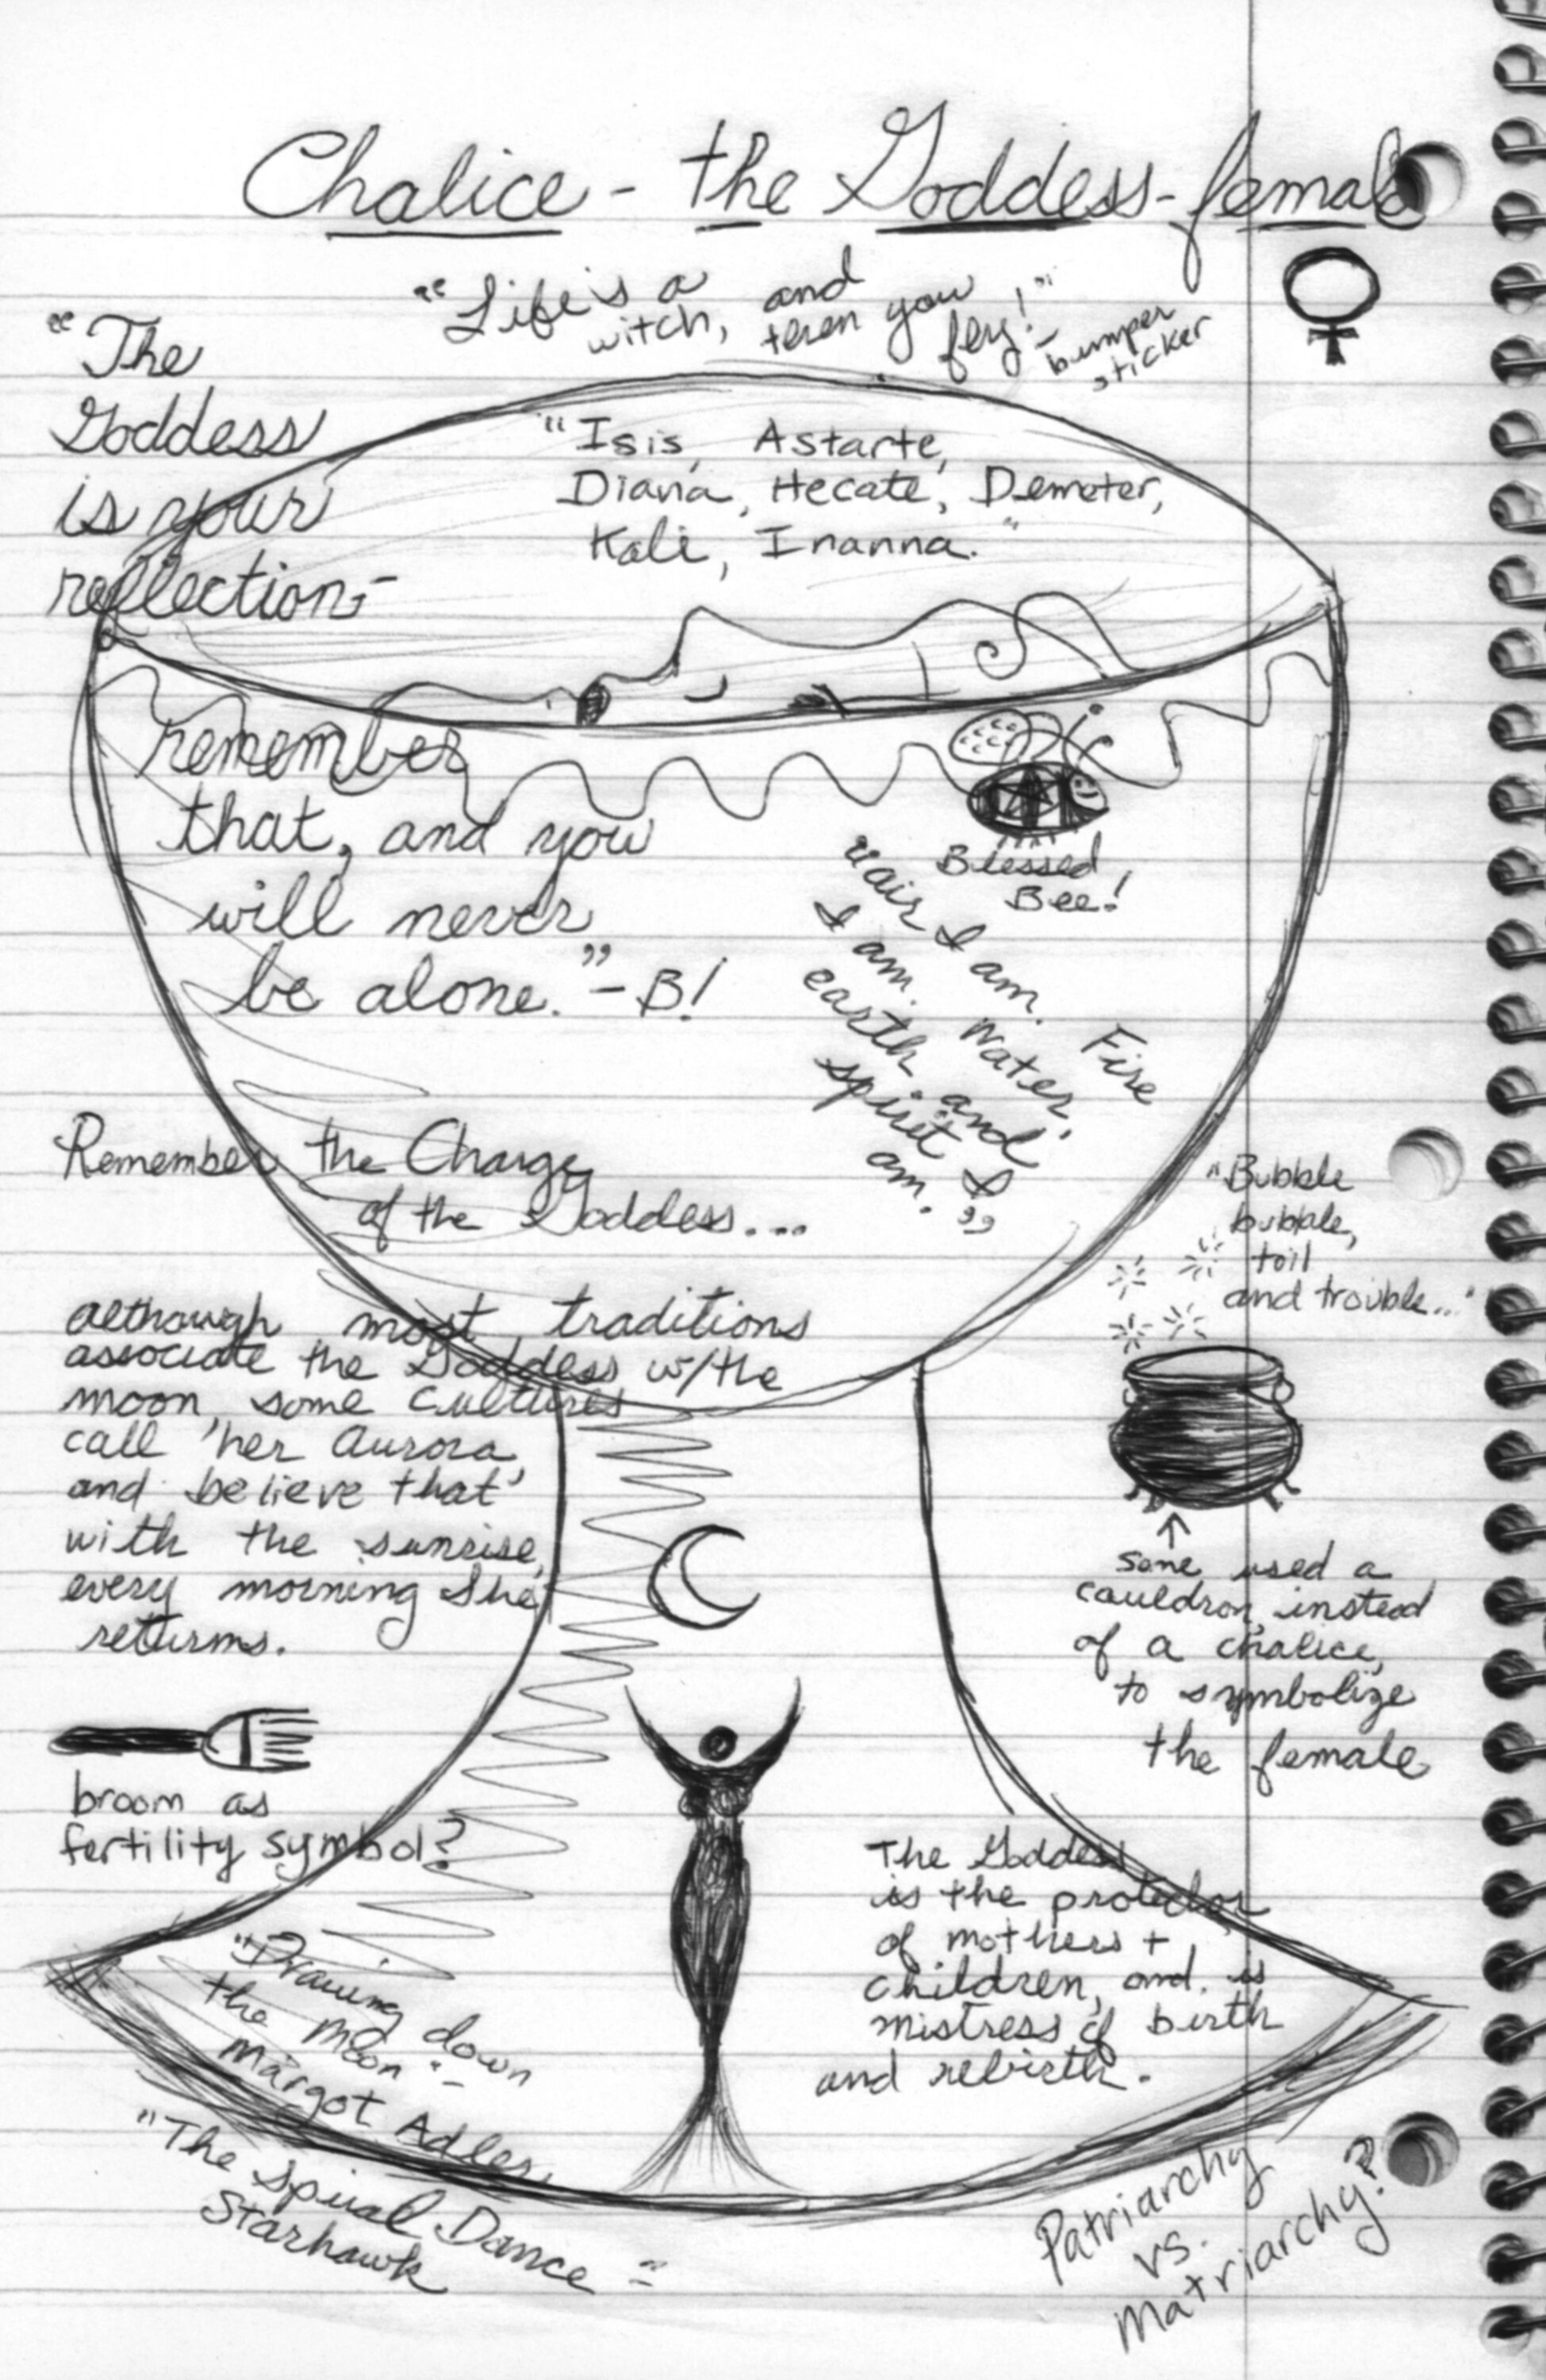 Chalice - the Goddess - female
"Life is a
witch, and
then you
fly!" -
bumper
sticker
"The
Goddess
is your
reflection -
remember
that, and you
will never
be alone." - B!
"Isis, Astarte,
Diana, Hecate, Demeter,
Kali, Inanna."
Blessed
Bee!
"air I am. Fire
I am. Water,
earth and
spirit I
am."
Remember the Charge
of the Goddess....
although most traditions
associate the Goddess w/the
moon, some cultures
call her Aurora,
and believe that
with the sunrise,
every morning She
returns.
"Bubble
bubble,
toil
and trouble..."
Some used a
cauldron, instead
of a chalice,
to symbolize
the female
broom as
fertility symbol?
The Goddess
is the protector
of mothers +
children, and is
mistress of birth
and rebirth.
"Drawing down
the Moon" -
Margot Adler
"The Spiral Dance" -
Starhawk
Patriarchy
vs.
Matriarchy?